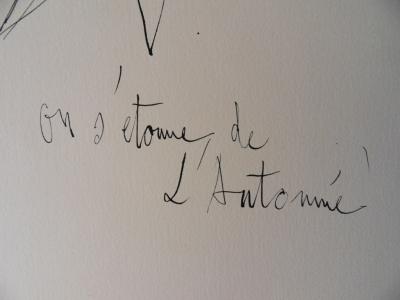 on s'etonne, de
L'Automne